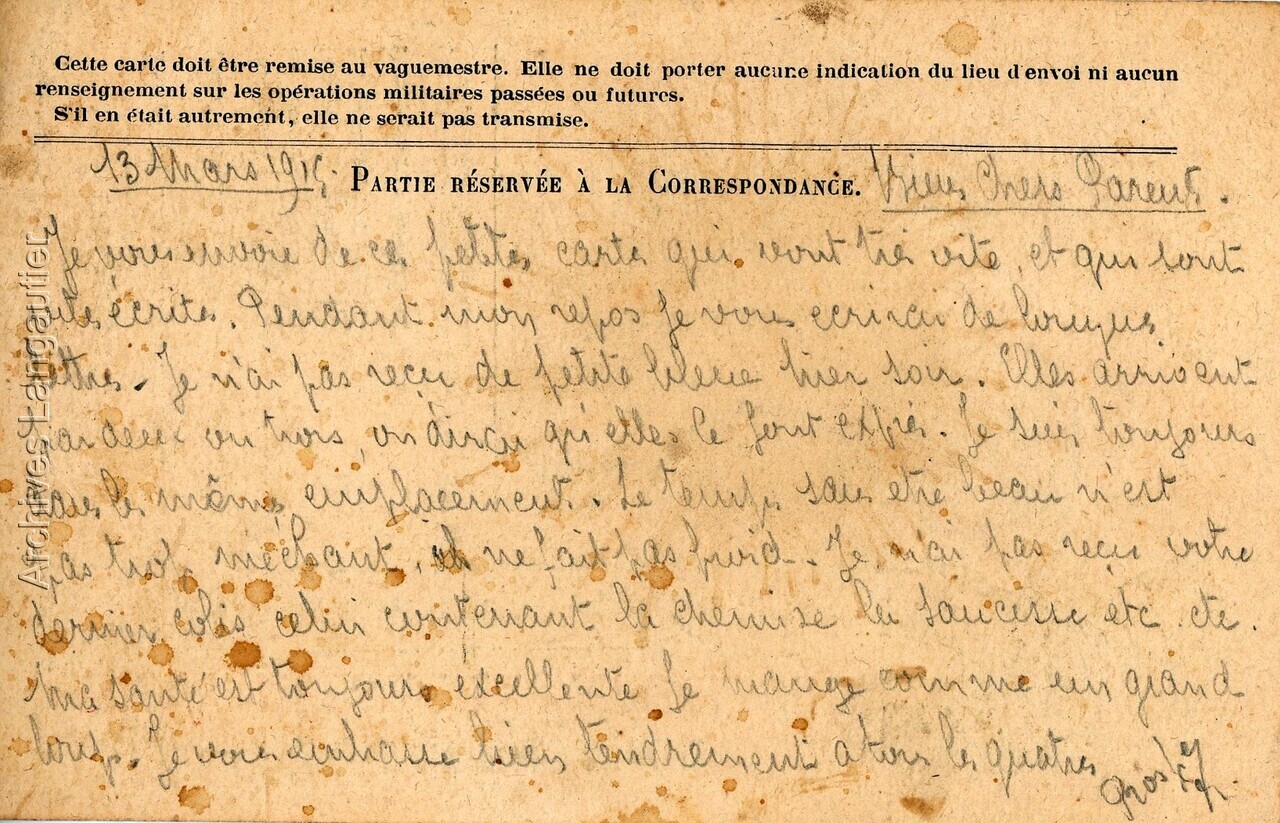 Cette carte doit être remise au vaguemestre. Elle ne doit porter aucune indication du lieu d'envoi ni aucun
renseignement sur les opérations militaires passées ou futures.
S'il en était autrement, elle ne serait pas transmise.
13 Mars 1915. PARTIE RÉSERVÉE À LA CORRESPONDANCE. Bien Chers Parents.
Je vous envoie de ces petites cartes qui vont très vite, et qui sont
vite écrites. Pendant mon repos je vous écrirai de longues
lettres. Je n'ai pas reçu de petite bleue hier soir. Elles arrivent
par deux ou trois, on dirait qu'elles le font exprès. Je suis toujours
dans le même emplacement. Le temps sans être beau n'est
pas trop méchant, il ne fait pas froid. Je n'ai pas reçu votre
dernier colis celui contenant la chemise la saucisse etc. etc.
Ma santé est toujours excellente Je mange comme un grand
loup. Je vous embrasse bien tendrement a tous les quatres
gros
Archives Langautier